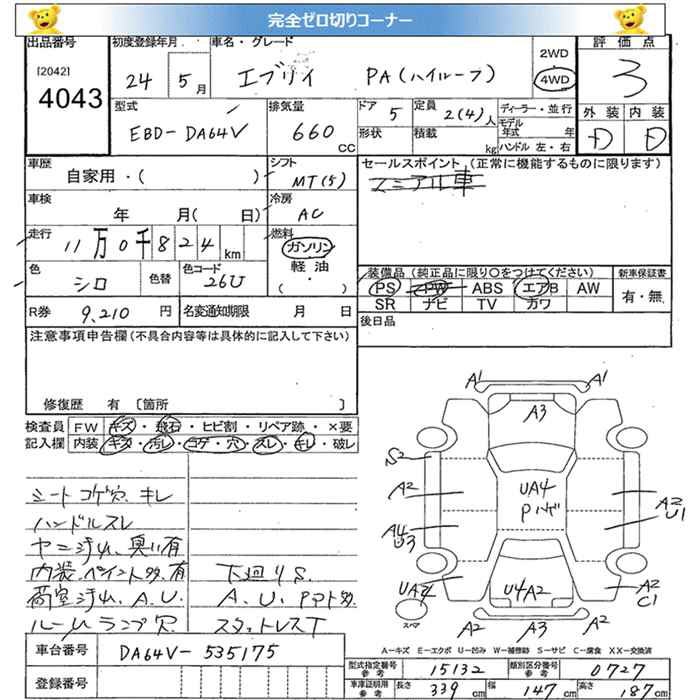 完全ゼロ切りコーナー
出品番号 初度登録年月 車名・グレード 評価点
[2042]
4043
24 5月 エブリイ PA(ハイルーフ) 2WD 4WD 3
型式 排気量 ドア 5 定員 2(4)人 ディーラー・並行 外装 内装
EBD-DA64V 660cc 形状 積載 kg モデル年式 年 ハンドル 左・右 D D
車歴 自家用・( ) シフト MT(5) セールスポイント (正常に機能するものに限ります)
マニアル車
車検 年 月(日) 冷房 AC
走行 11万0千824km 燃料 ガソリン 軽油 (・)
色 シロ 色替 色コード 26U
装備品(純正品に限り○をつけてください) 新車保証書
PS PW ABS エアB AW 有・無
SR ナビ TV カワ
R券 9,210円 名変通知期限 月 日
後日品
注意事項申告欄(不具合内容等は具体的に記入して下さい)
修復歴 有 [箇所 ]
検査員 FW キズ・飛石・ヒビ割・リペア跡・×要
記入欄 内装 キズ・汚レ・コゲ・穴・スレ・キレ・破レ
シート コゲ穴、キレ
ハンドルスレ
ヤニ汚れ、臭い有
内装、ペイント多、有 下廻りS.
荷室汚れ、A.U. A.U.PPト多
ルームランプ穴 スタットレスT
A1 A1
A3
S2
A2 UA4 A2 U1
Pハゲ
A4 U3
UA4 U4A2 A2 C1
スペア
A2 A3 A2
A−キズ E−エクボ U−凹み W−補修跡 S−サビ C−腐食 XX−交換済
車台番号 DA64V-535175
登録番号
型式指定番号 参考 15132 類別区分番号 参考 0727
車庫証明用 参考 長さ 339cm 幅 147cm 高さ 187cm